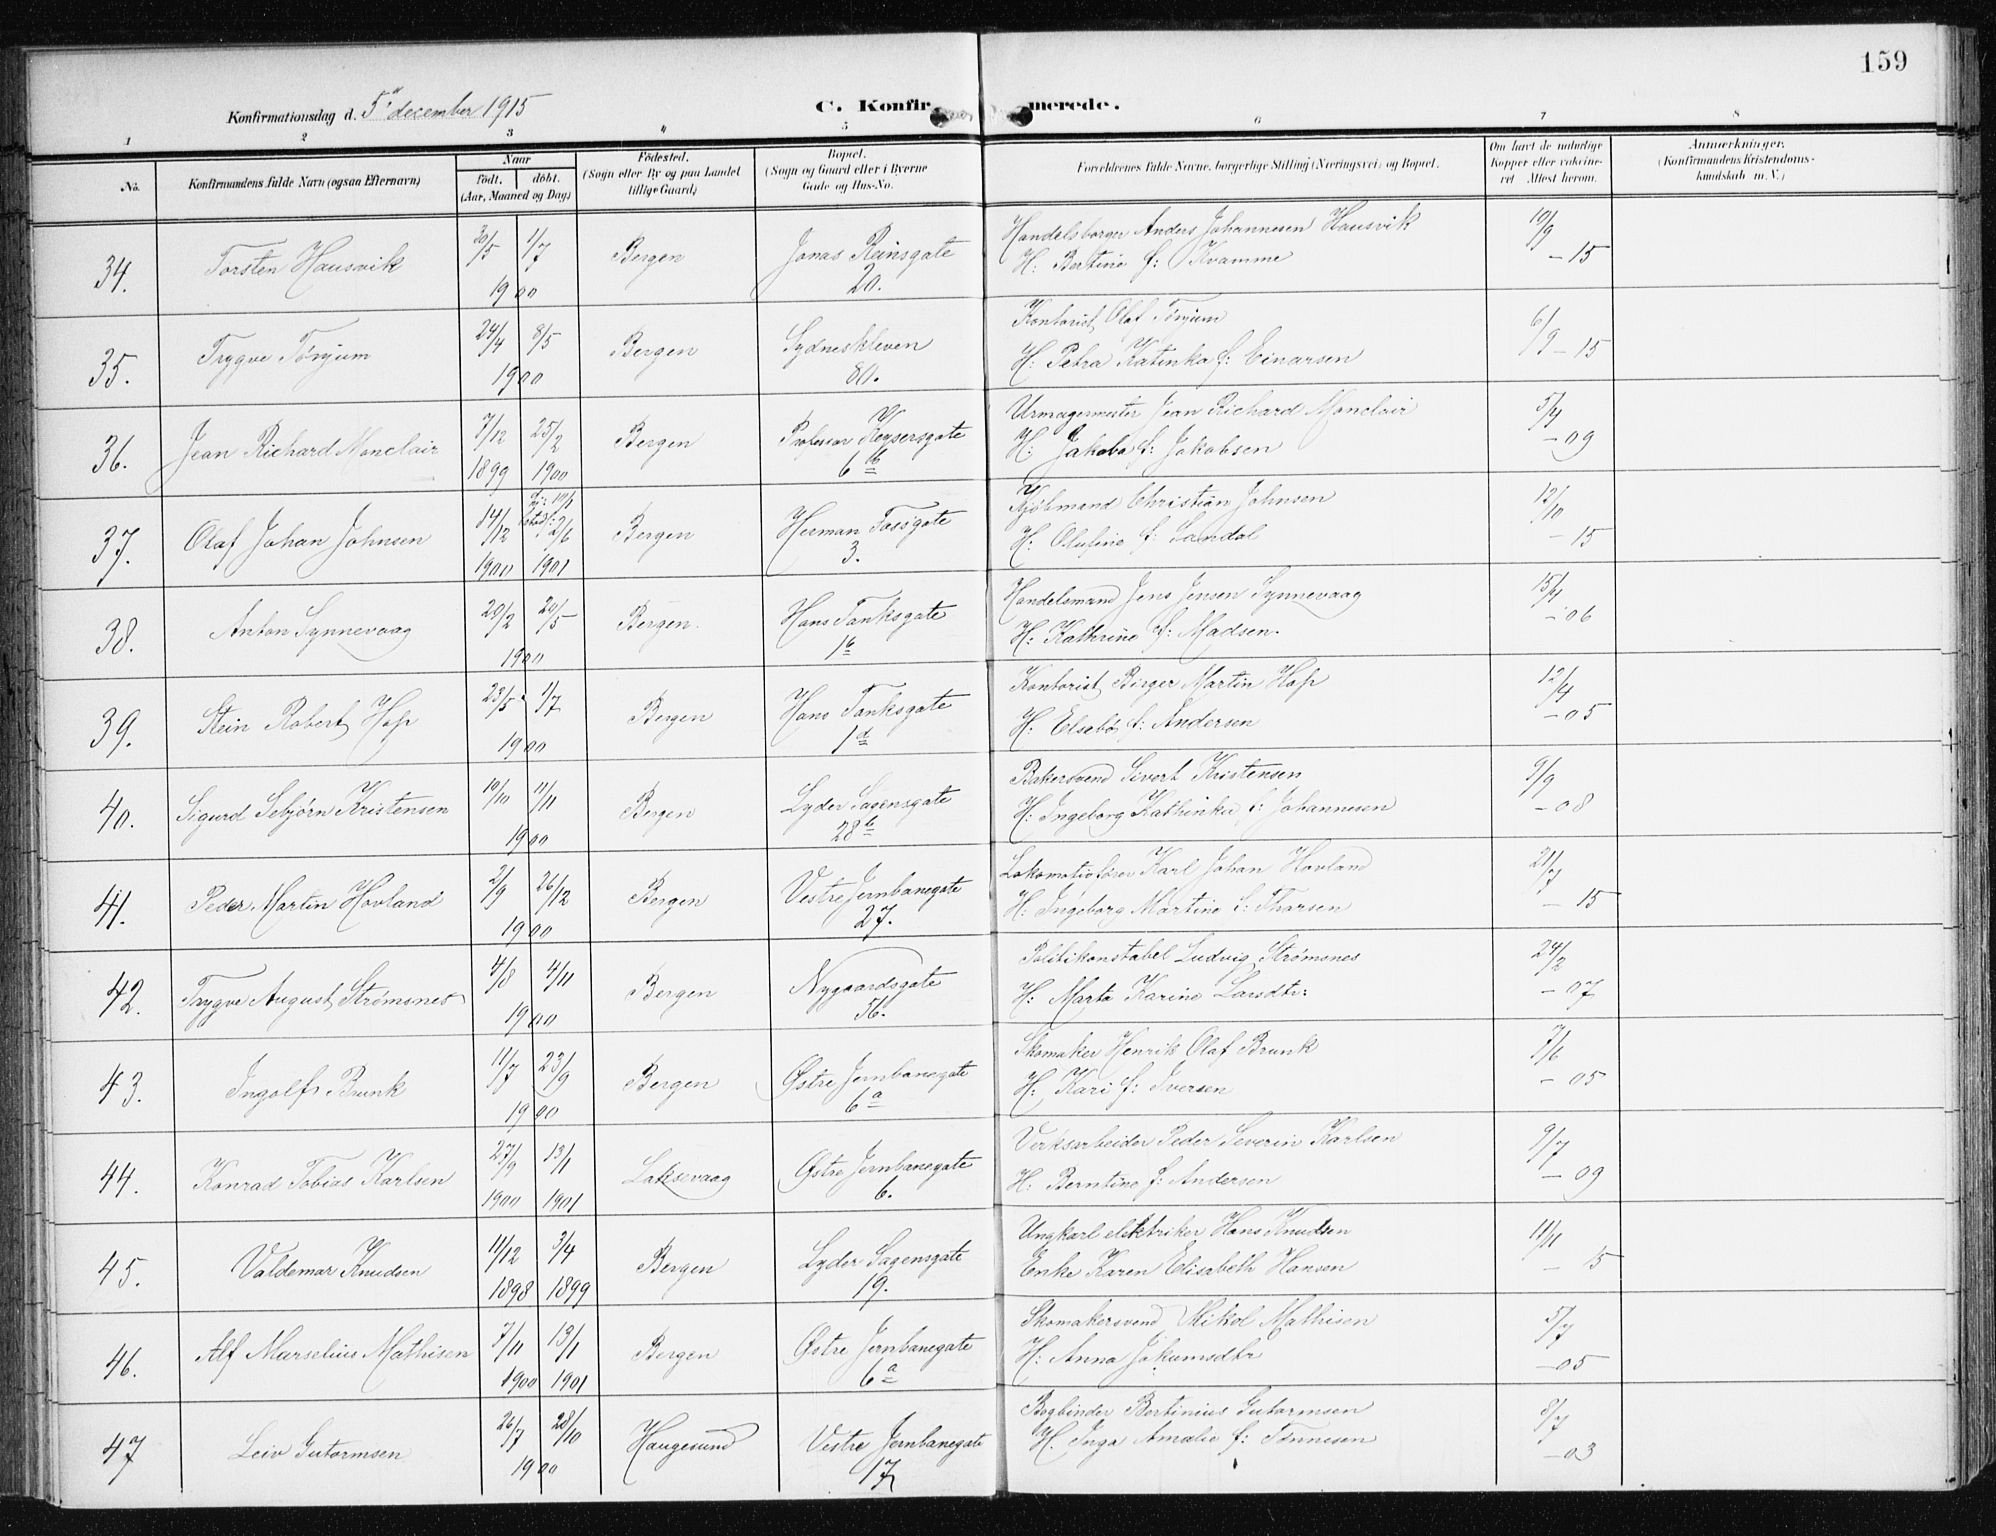 159
Konfirmationsdag d. 5" december 1915 C. Konfirmerede.
1 2 3 4 5 6 7 8
No. Konfirmandens fulde Navn (ogsaa Efternavn) Naar födt. döbt. (Aar, Maaned og Dag) Födested. (Sogn eller By og paa Landet tillige Gaard) Bopæl. (Sogn og Gaard eller i Byerne Gade og Hus-No. Forældrenes fulde Navne, borgerlige Stilling (Næringsvei) og Bopæl. Om havt de naturlige Kopper eller vakcineret. Attest herom. Anmærkninger. (Konfirmandens Kristendomskundskab m. V.)
34. Torsten Hausvik 30/5 1/7 1900 Bergen Jonas Reinsgate 20. Handelsborger Anders Johannesen Hausvik 10/9 - 15
H: Bertine f: Kvamme
35. Trygve Tönjum 24/4 8/5 1900 Bergen Sydneskleven 80. Kontorist Olaf Tönjum 6/9 - 15
H: Petra Katinka f: Einarsen
36. Jean Richard Monclair 7/12 1899 25/2 1900 Bergen Professor Keysersgate 6b Urmagermester Jean Richard Monclair 5/4 - 09
H: Jakoba f: Jakobsen
37. Olaf Johan Johnsen 14/12 1900 2/6 1901 Bergen Herman Fossgate 3. Kjöbmand Christian Johnsen 12/10 - 15
H: Olufine f: Sandal
38. Anton Synnevaag 29/2 20/5 1900 Bergen. Hans Tanksgate 1b Handelsmand Jens Jensen Synnevaag 15/4 - 06
H: Kathrine f: Madsen.
39. Stein Robert Hop 23/5 1/7 1900 Bergen Hans Tanksgate 1d Kontorist Birger Martin Hop 12/4 - 05
H: Elsebö f: Andersen
40. Sigurd Sebjørn Kristensen 10/10 11/11 1900 Bergen Lyder Sagensgate 28b Bakersvend Sivert Kristensen 9/9 - 08
H: Ingeborg Kathinka f: Johannesen
41. Peder Martin Hovland 2/9 26/12 1900 Bergen Vestre Jernbanegate 27. Lokomotivfører Karl Johan Hovland 21/7 - 15
H: Ingeborg Martine f: Thorsen
42. Trygve August Strømsnes 4/8 4/11 1900 Bergen Nygaardsgate 56. Politikonstabel Ludvig Strømsnes 24/2 - 07
H: Marta Karine Larsdtr:
43. Ingolf Brunk 11/7 23/9 1900 Bergen Østre Jernbanegate 6a Skomaker Henrik Olaf Brunk 7/6 - 05
H: Kari f: Iversen
44. Konrad Tobias Karlsen 27/9 1900 13/1 1901 Laksevaag Østre Jernbanegate 6. Verksarbeider Peder Severin Karlsen 9/7 - 09
H: Berntine f: Andersen
45. Valdemar Knudsen 11/12 1898 3/4 1899 Bergen Lyder Sagensgate 19. Ungkarl elektriker Hans Knudsen 11/11 - 15
Enke Karen Elisabeth Hansen
46. Alf Marselius Mathisen 7/11 1900 13/1 1901 Bergen Østre Jernbanegate 6a Skomakersvend Mikal Mathisen 5/7 - 05
H: Anna Jakumsdtr
47 Leiv Gutormsen 26/7 28/10 1900 Haugesund Vestre Jernbanegate 17 Bogbinder Bertinius Gutormsen 8/7 - 03
H. Inga Amalie f: Tønnesen